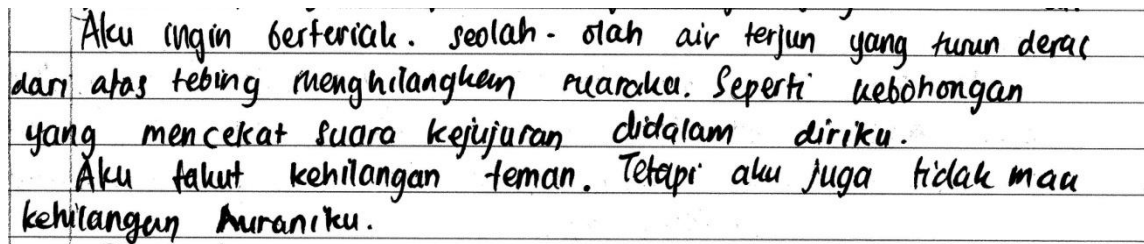 Aku ingin berteriak. Seolah-olah air terjun yang turun deras
dari atas tebing menghilangkan suaraku. Seperti kebohongan
yang mencekat suara kejujuran didalam diriku.
Aku takut kehilangan teman. Tetapi aku juga tidak mau
kehilangan Nuraniku.